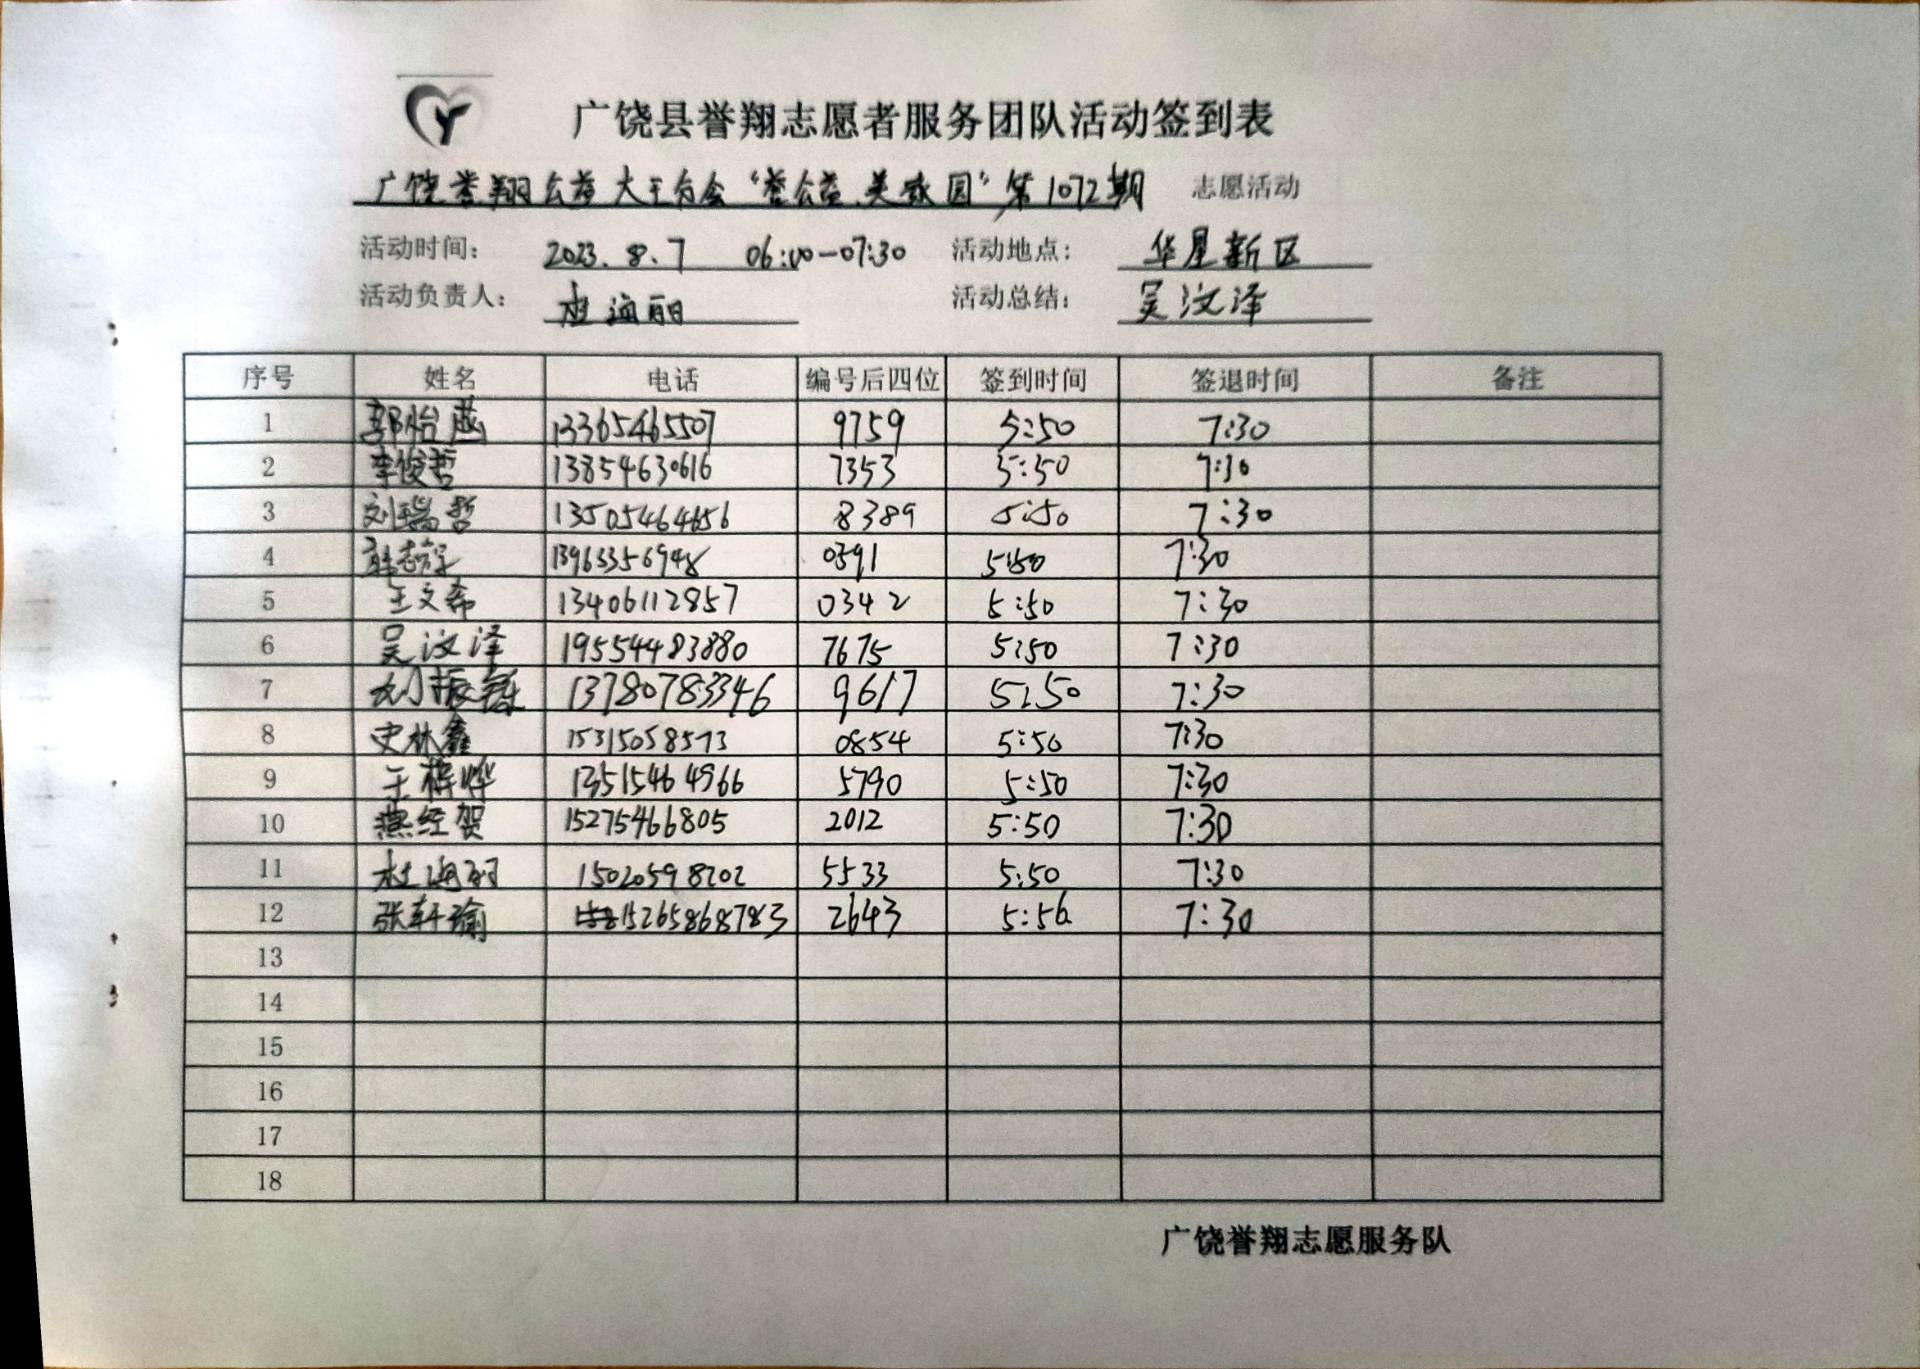 广饶县誉翔志愿者服务团队活动签到表
广饶誉翔公益大王分会“誉公益、美家园”第1072期 志愿活动
活动时间： 2023.8.7 06:00-07:30 活动地点： 华星新区
活动负责人： 杜海丽 活动总结： 吴汶泽
序号 姓名 电话 编号后四位 签到时间 签退时间 备注
1 郭怡菡 13365465507 9759 5:50 7:30
2 李俊哲 13854630616 7353 5:50 7:30
3 刘瑞哲 13505464656 8389 5:50 7:30
4 13963356948 0391 5:50 7:30
5 王文希 13406112857 0342 5:50 7:30
6 吴汶泽 19554483880 7675 5:50 7:30
7 刘振铄 13780783346 9617 5:50 7:30
8 史林鑫 15315058573 0854 5:50 7:30
9 王梓烨 13515464966 5790 5:50 7:30
10 燕经贺 15275466805 2012 5:50 7:30
11 杜海丽 15020598202 5533 5:50 7:30
12 张轩瑜 15265868783 2643 5:56 7:30
13
14
15
16
17
18
广饶誉翔志愿服务队